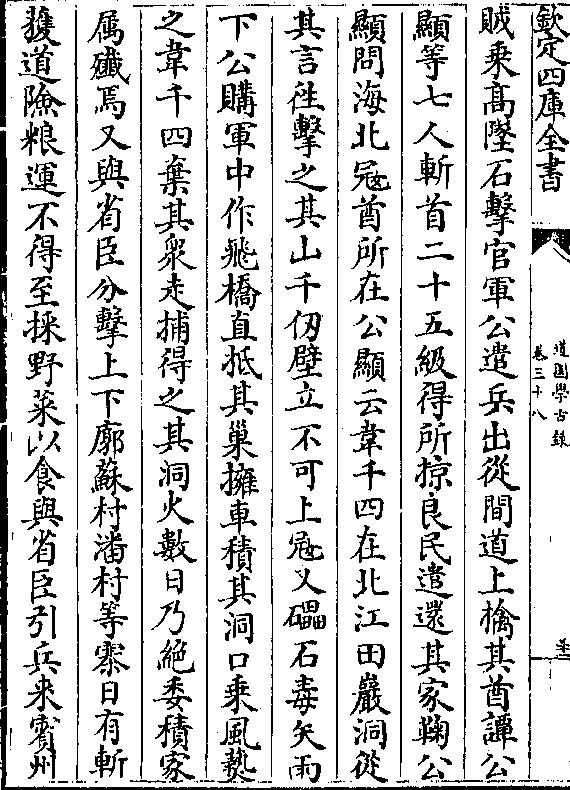 欽定四庫全書
道園學古録
卷三十八
賊乗髙墜石擊官軍公遣兵出從間道上擒其酋譚公
顯等七人斬首二十五級得所掠良民遣還其家鞠公
顯問海北冦酋所在公顯云韋千四在北江田巖洞從
其言徃擊之其山千仭壁立不可上冦又礧石毒矢雨
下公購軍中作飛橋直抵其巢擁車積其洞口乗風爇
之韋千四棄其衆走捕得之其洞火數日乃絶委積家
属殲焉又與省臣分擊上下廓蘇村潘村等寨日有斬
獲道險粮運不得至採野菜以食與省臣引兵来賔州